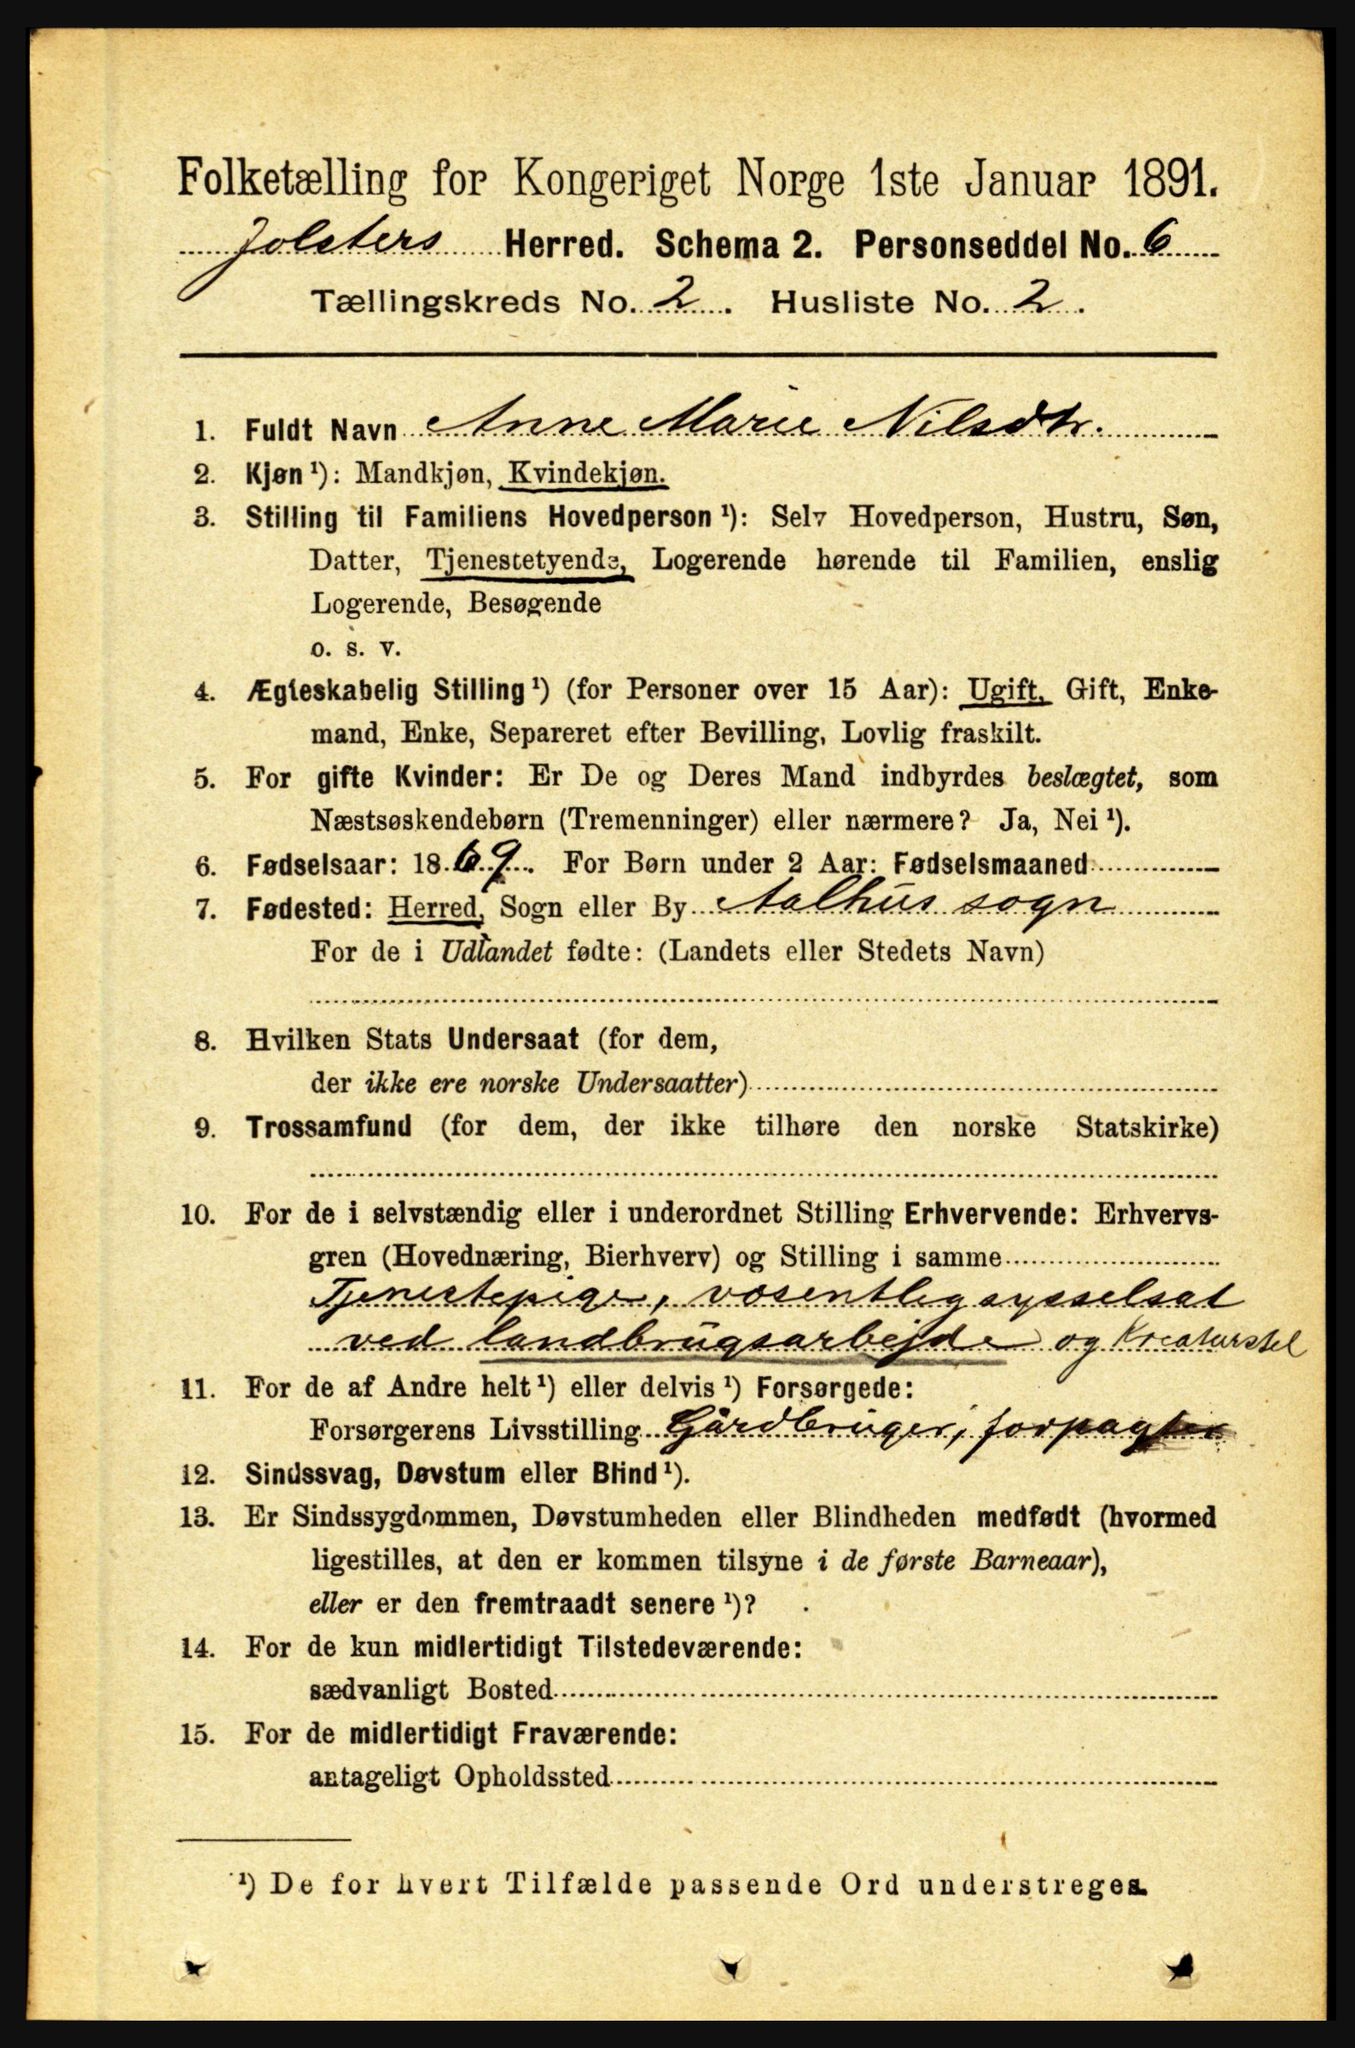 Folketælling for Kongeriget Norge 1ste Januar 1891.
Jolsters Herred. Schema 2. Personseddel No. 6
Tællingskreds No. 2. Husliste No. 2.
1. Fuldt Navn Anne Marie Nilsdtr.
2. Kjøn¹): Mandkjøn, Kvindekjøn.
3. Stilling til Familiens Hovedperson¹): Selv Hovedperson, Hustru, Søn,
Datter, Tjenestetyende, Logerende hørende til Familien, enslig
Logerende, Besøgende
o. s. v.
4. Ægteskabelig Stilling¹) (for Personer over 15 Aar): Ugift, Gift, Enke-
mand, Enke, Separeret efter Bevilling, Lovlig fraskilt.
5. For gifte Kvinder: Er De og Deres Mand indbyrdes beslægtet, som
Næstsøskendebørn (Tremenninger) eller nærmere? Ja, Nei¹).
6. Fødselsaar: 1869. For Børn under 2 Aar: Fødselsmaaned
7. Fødested: Herred, Sogn eller By Aalhus sogn
For de i Udlandet fødte: (Landets eller Stedets Navn)
8. Hvilken Stats Undersaat (for dem,
der ikke ere norske Undersaatter)
9. Trossamfund (for dem, der ikke tilhøre den norske Statskirke)
10. For de i selvstændig eller i underordnet Stilling Erhvervende: Erhvervs-
gren (Hovednæring, Bierhverv) og Stilling i samme
Tjenestepige, væsentlig sysselsat
ved landbrugsarbejde og Kreaturstel
11. For de af Andre helt¹) eller delvis¹) Forsørgede:
Forsørgerens Livsstilling Gårdbruger, forpagter
12. Sindssvag, Døvstum eller Blind¹).
13. Er Sindssygdommen, Døvstumheden eller Blindheden medfødt (hvormed
ligestilles, at den er kommen tilsyne i de første Barneaar),
eller er den fremtraadt senere¹)?
14. For de kun midlertidigt Tilstedeværende:
sædvanligt Bosted
15. For de midlertidigt Fraværende:
antageligt Opholdssted
¹) De for hvert Tilfælde passende Ord understreges.